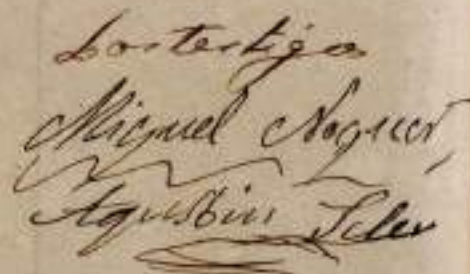 Los testigos
Miguel Noguer,
Agustin Soler